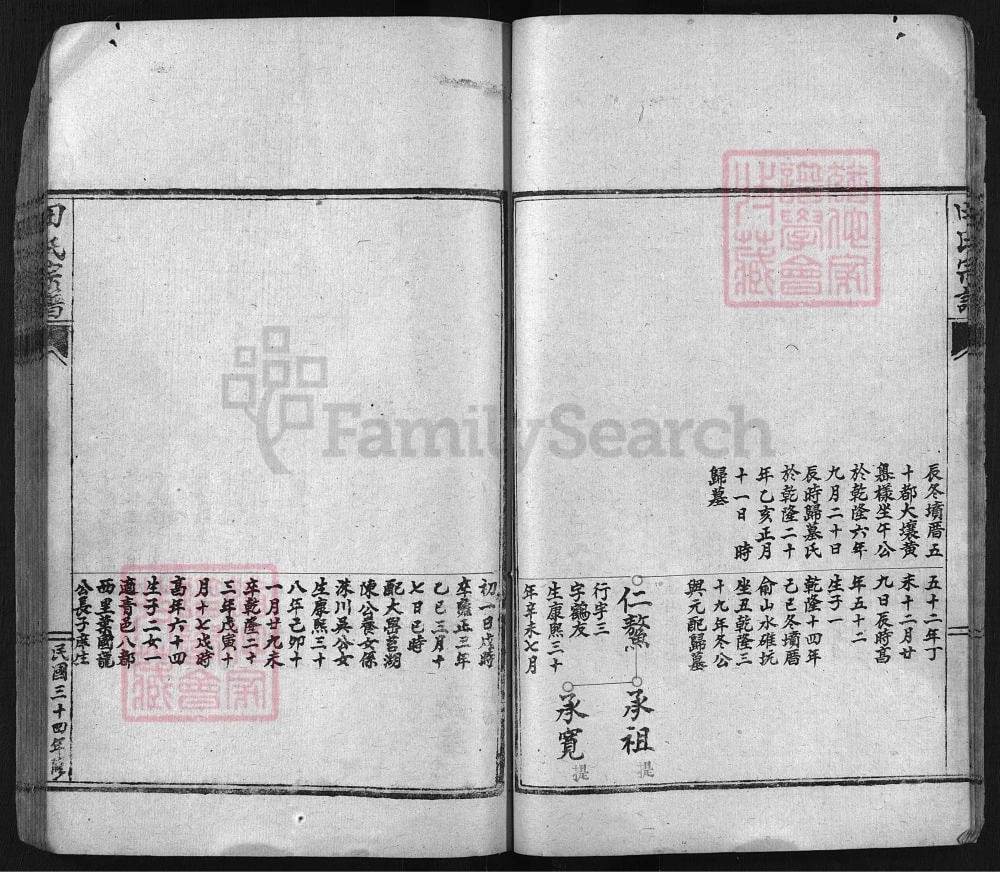 田氏宗譜
辰冬墳厝五
十都大壤黄
㠌樣坐午公
於乾隆六年
九月二十日
辰時歸墓氏
於乾隆二十
年乙亥正月
十一日 時
歸墓
五十二年丁
未十二月廿
九日辰時高
年五十二
生子一
乾隆十四年
己巳冬墳厝
俞山水碓坑
坐丑乾隆三
十九年冬公
與元配歸墓
仁鰲
承祖
提
承寬
提
行宇三
字鶴友
生康熙三十
年辛未七月
初一日戌時
卒雍正三年
乙巳三月十
七日巳時
配大嶨莒湖
陳公養女係
洙川吳公女
生康熙三十
八年己卯十
一月廿九未
卒乾隆二十
三年戊寅十
月十七戌時
高年六十四
生子二女一
適青邑八都
西里葉國龍
公長子彦生
田氏宗譜
民國三十四年修
譜學會
藏
FamilySearch